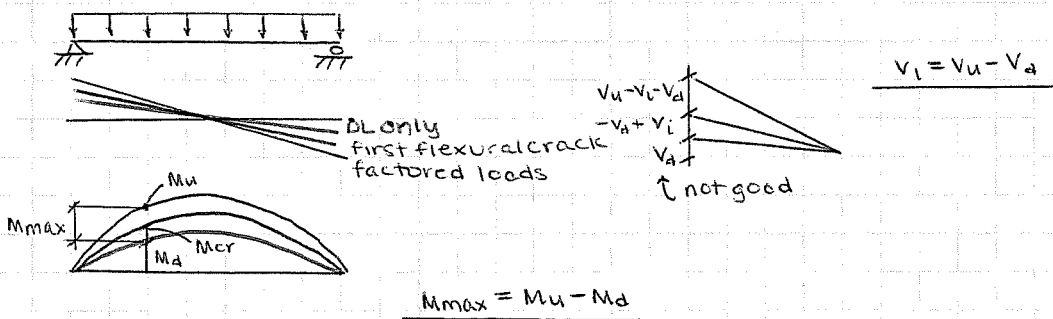 DL only
first flexural crack
factored loads
Vu-Vi-Vd
-Vd+Vi
Vd
↑ not good
Vi = Vu - Vd
Mu
Mmax
Mcr
Md
Mmax = Mu - Md